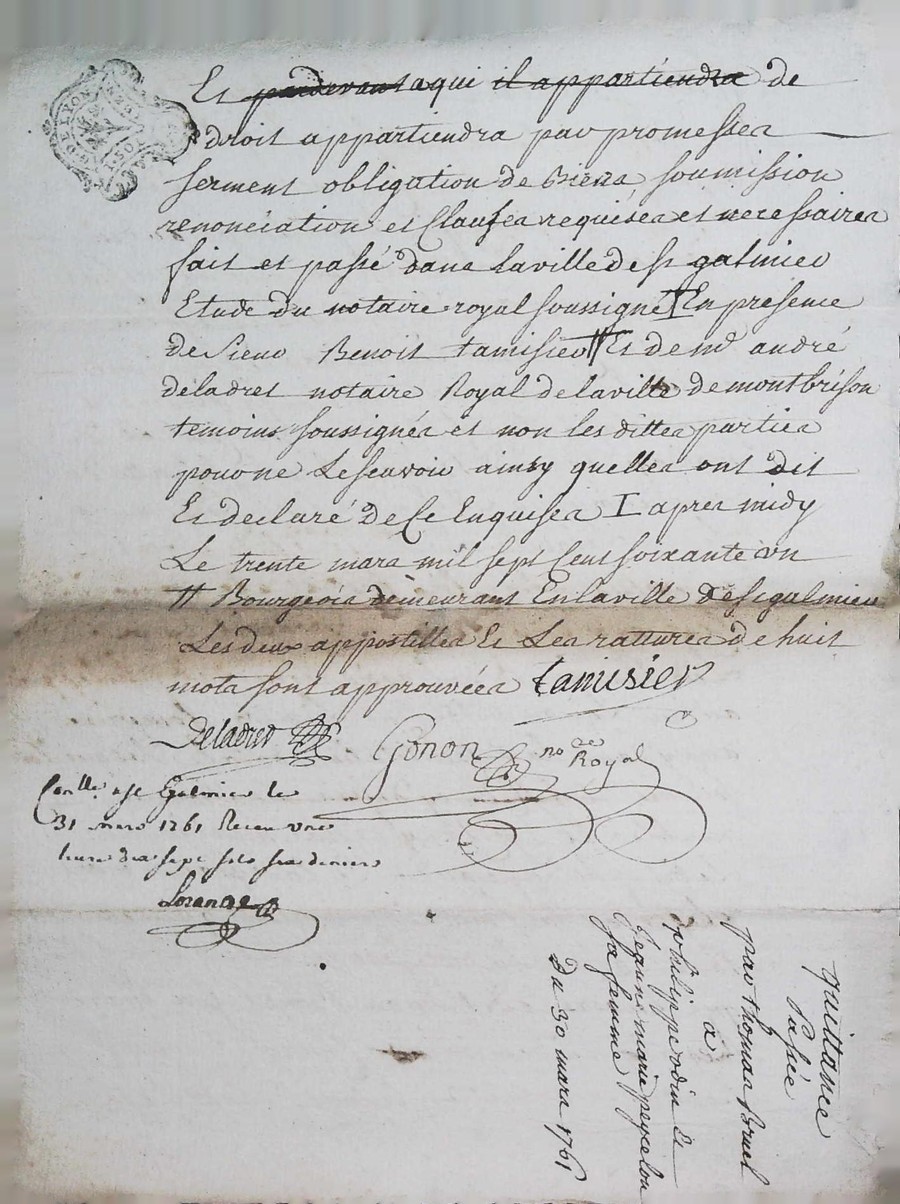 GEN. DE LYON
Et pardevant a qui il appartiendra de
droit appartiendra par promesses
serment obligation de biens soumission
renonciation et Clauses requises et necessaires
fait et passé dans la ville de st galmier
Etude du notaire royal soussigné En presence
de Sieur Benoit tamisier # Et de mr andré
deladret notaire Royal de la ville de montbrison
temoins soussignés et non les dittes parties
pour ne Le scavoir ainsy quelles ont dit
Et declaré de Ce Enquises apres midy
Le trente mars mil sept Cent soixante un
# Bourgeois demeurant En la ville de st galmier
Les deux appostilles Et Les rattures de huit
mots sont approuvées tamisier
Deladret
Gonon no.re Royal
Conlle a st Galmier le
31 mars 1761 Receu une
livre dix sept sols six deniers
quittance
Passée
par thomas Bruel
a
philippe odin Et
Jeanne marie peycelon
sa femme
Du 30 mars 1761